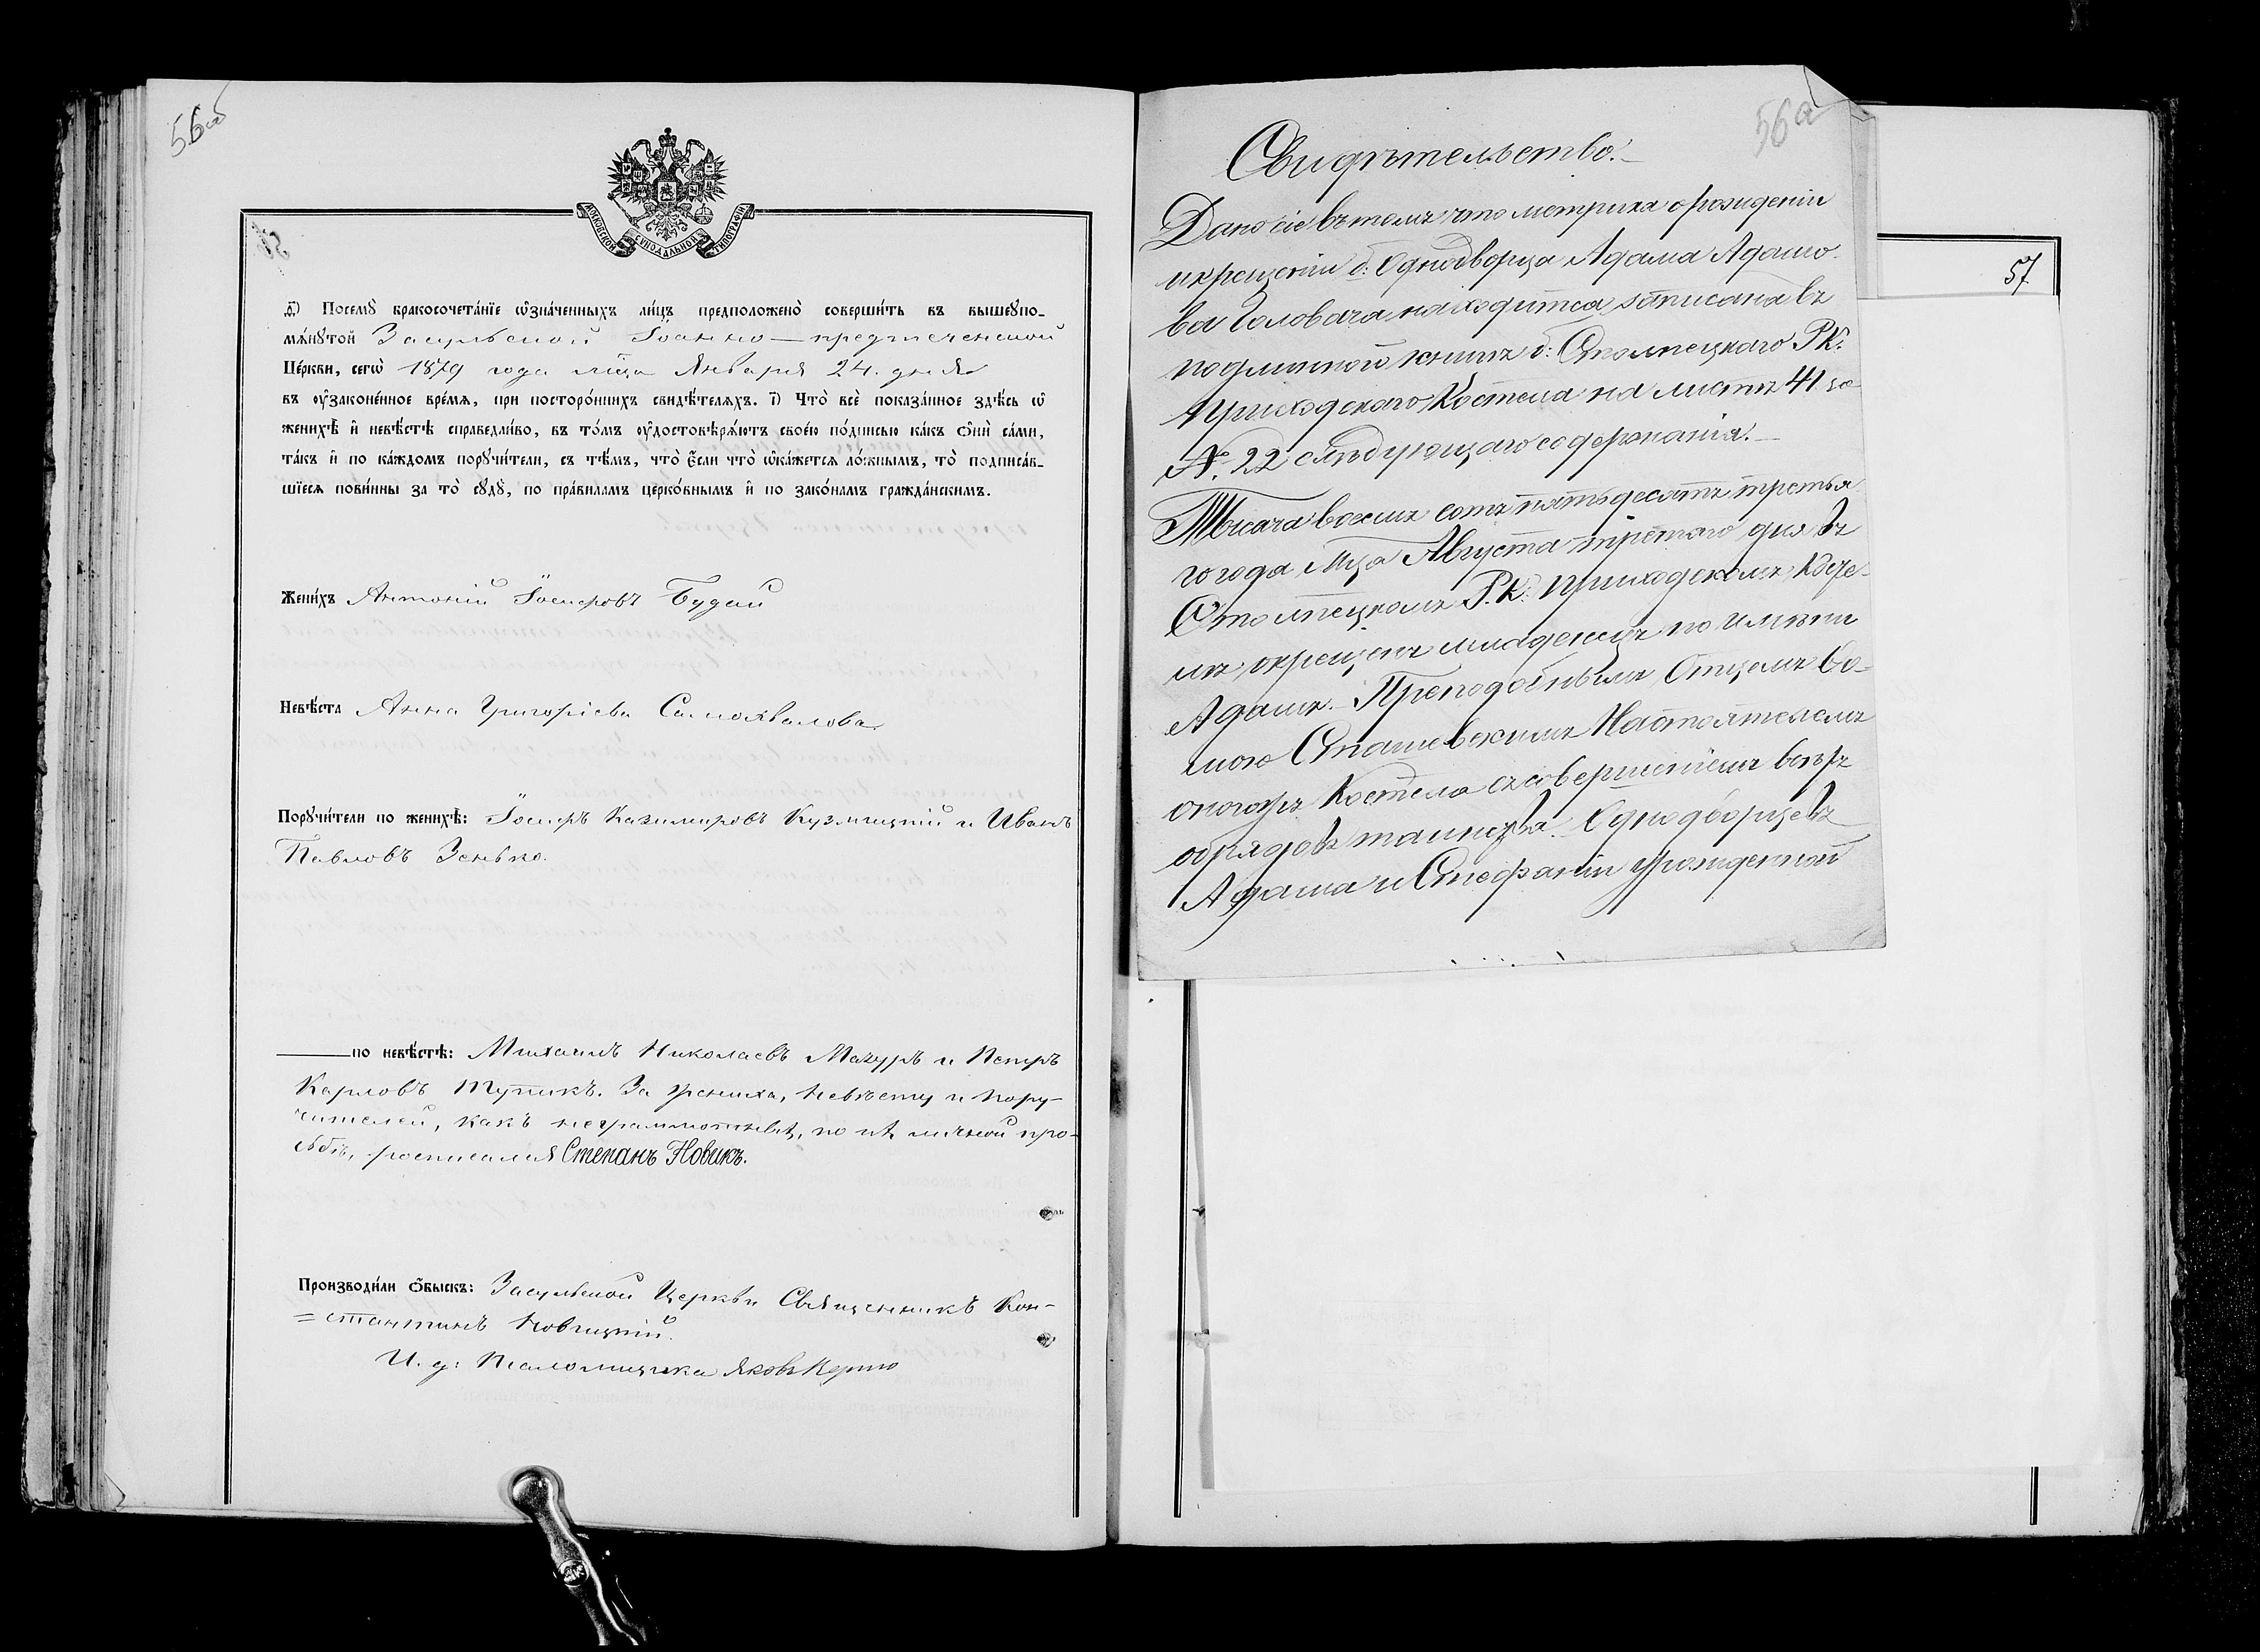 56об
МОСКОВСКОЙ СѴНОДАЛЬНОЙ ТИПОГРАФІИ
Посемꙋ̀ бракосочета́нїе ѡ҆зна́ченныхъ ли́цъ предположено̀ соверши́ть въ вышеꙋпо-
мѧ́нꙋтой Засульской Іоанно-предтеченской
Це́ркви, сегѡ̀ 1879 года мѣца Января 24. дня
въ ᲂу҆зако́ненное вре́мѧ, при посторо́ннихъ свидѣ́телѧхъ. 7) Что̀ всѐ пока́занное здѣ́сь ѡ҆
женихѣ̀ и҆ невѣ́стѣ справедли́во, въ то́мъ ᲂу҆достовѣрѧ́ютъ свое́ю по́дписью ка́къ ѻ҆нѝ са́ми,
та́къ и҆ по ка́ждомъ порꙋчи́тели, съ тѣ́мъ, что̀ є҆́сли что̀ ѡ҆ка́жетсѧ ло́жнымъ, то̀ подписа́в-
шїесѧ пови́нны за то̀ сꙋдꙋ̀, по пра́виламъ церко́внымъ и҆ по зако́намъ гражда́нскимъ.
Жени́хъ Антоній Іосифовъ Будай
Невѣ́ста Анна Григоріева Самохвалова
Порꙋчи́тели по женихѣ̀: Іосифъ Казимировъ Кузмицкій и Иванъ
Павловъ Зенько.
по невѣ́стѣ: Михаилъ Николаевъ Мазуръ и Петръ
Карловъ Тупикъ. За жениха, невѣсту и пору-
чителей, какъ неграммотныхъ, по ихъ личной про-
сьбѣ, росписался Степанъ Новикъ.
Производи́ли ѻ҆́быскъ: Засульской Церкви Священникъ Кон-
=стантинъ Новицкій.
И. д: Псаломщика Яковъ
56а
Свидѣтельство.
Дано сіе въ томъ что метрика о рожденіи
и крещеніи б: Однодворца Адама Адамо-
ва Головача находится записана въ
подлинной книгѣ б: Столпецкаго Р.К:
приходскаго Костела на листѣ 41 за
№ 22 слѣдующаго содержанія.
Тысяча восемь сотъ пятьдесятъ третья
го года Мца Августа третяго дня въ
Столпецкомъ Р.К: приходскомъ Косте-
лѣ окрещенъ младенецъ по имени
Адамъ. Преподобнымъ Отцемъ Во-
мою Сташевскимъ Настоятелемъ
оногожъ Костела съ совершеніемъ всѣхъ
обрядовъ таинства. Однодворцевъ
Адама и Стефаніи урожденной
57